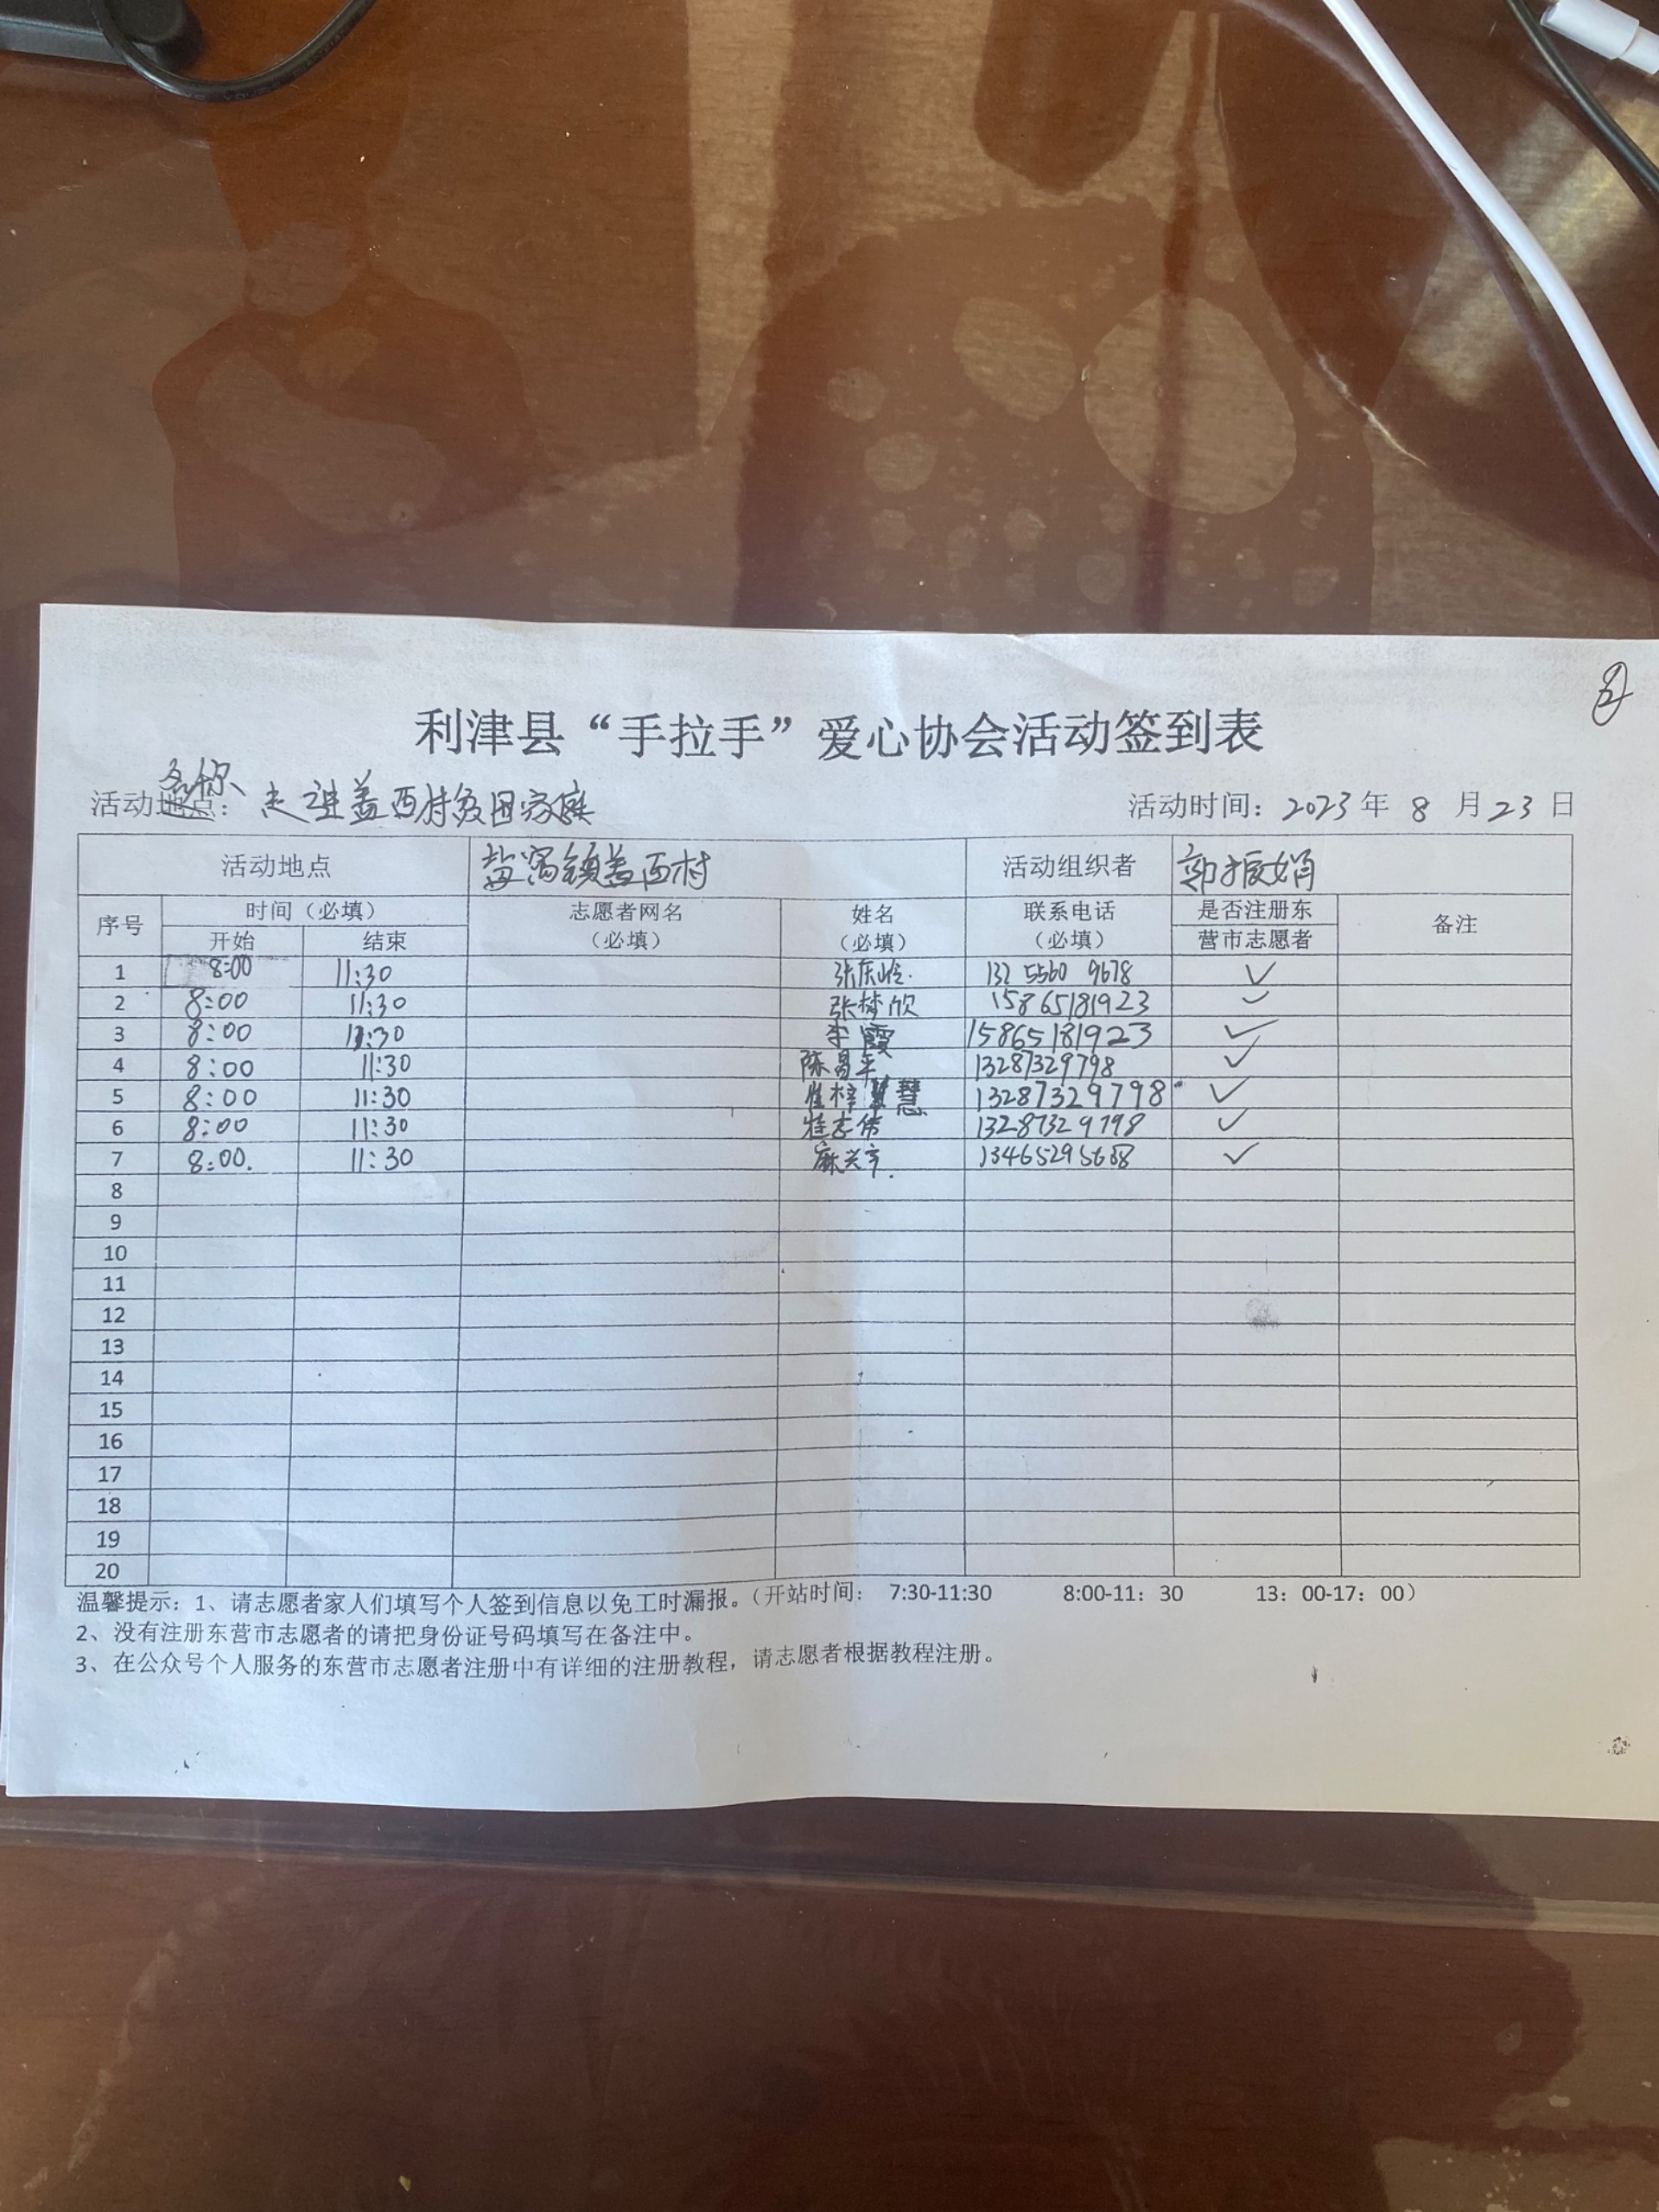 ②
利津县“手拉手”爱心协会活动签到表
名称
活动地点: 走进盖西村贫困家庭 活动时间: 2023 年 8 月 23 日
活动地点 盐窝镇盖西村 活动组织者 郭振娟
序号 时间（必填） 志愿者网名 姓名 联系电话 是否注册东 备注
开始 结束 （必填） （必填） （必填） 营市志愿者
1 8:00 11:30 132 5560 9678 ✓
2 8:00 11:30 张梦欣 15865181923 ✓
3 8:00 11:30 李霞 15865181923 ✓
4 8:00 11:30 陈易平 13287329798 ✓
5 8:00 11:30 崔梓慧 13287329798 ✓
6 8:00 11:30 崔志伟 13287329798 ✓
7 8:00. 11:30 ✓
8
9
10
11
12
13
14
15
16
17
18
19
20
温馨提示：1、请志愿者家人们填写个人签到信息以免工时漏报。（开站时间： 7:30-11:30 8:00-11：30 13：00-17：00）
2、没有注册东营市志愿者的请把身份证号码填写在备注中。
3、在公众号个人服务的东营市志愿者注册中有详细的注册教程，请志愿者根据教程注册。